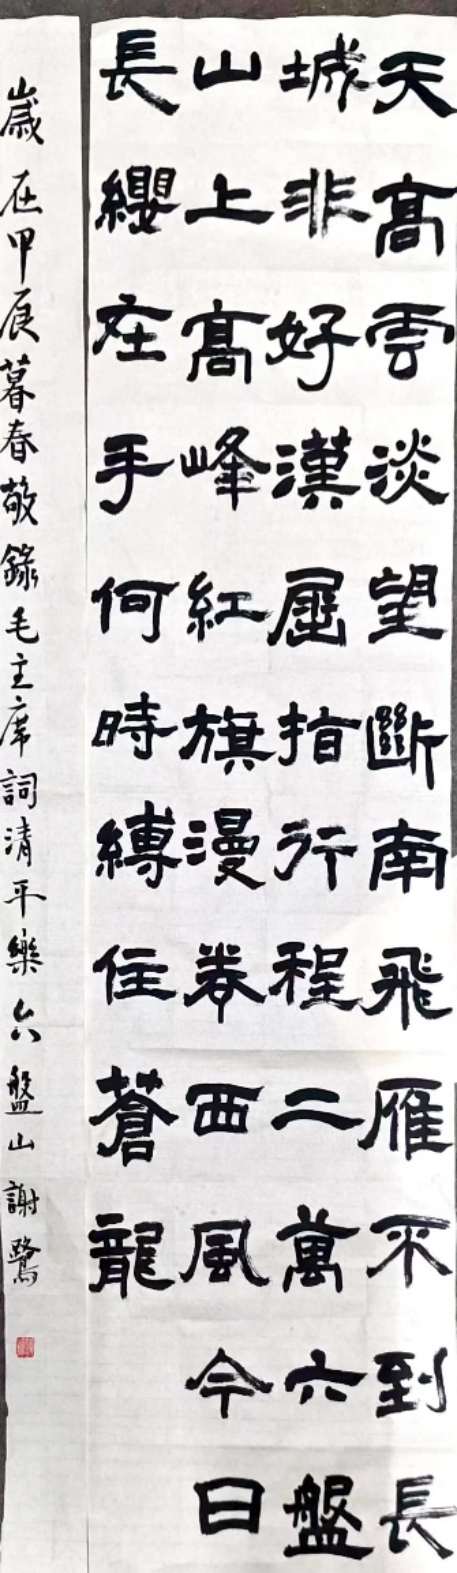 天高雲淡望斷南飛雁不到長
城非好漢屈指行程二萬六盤
山上高峰紅旗漫卷西風今日
長纓在手何時縛住蒼龍
歲在甲辰暮春敬錄毛主席詞清平樂六盤山謝鷺